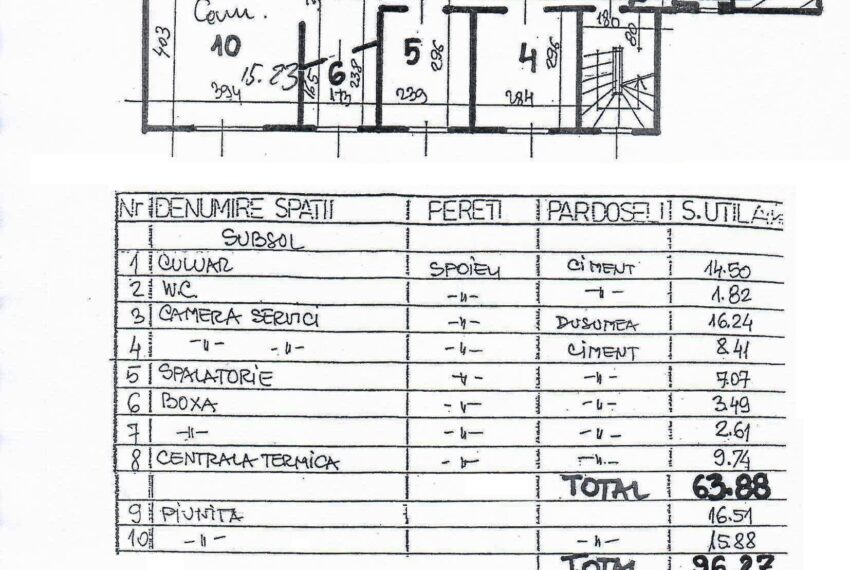 Cam.
403
10
15.23
394
165
6
238
173
5
296
239
4
296
284
180
80
Nr DENUMIRE SPATII PERETI PARDOSELI S.UTILA
SUBSOL
1 CULUAR SPOIELI CIMENT 14.50
2 W.C. -"- -"- 1.82
3 CAMERA SERVICI -"- DUSUMEA 16.24
4 -"- -"- -"- CIMENT 8.41
5 SPALATORIE -"- -"- 7.07
6 BOXA -"- -"- 3.49
7 -"- -"- -"- 2.61
8 CENTRALA TERMICA -"- -"- 9.74
TOTAL 63.88
9 PIVNITA 16.51
10 -"- -"- 15.88
TOTAL 96.27